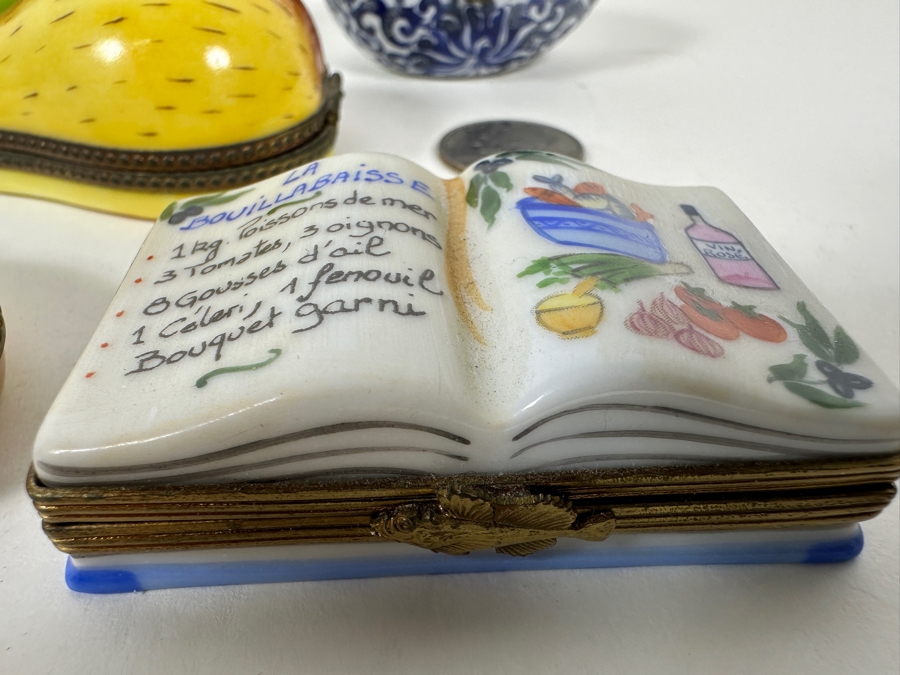 LA
BOUILLABAISSE
• 1kg. Poissons de mer
• 3 Tomates, 3 oignons
8 Gousses d'ail
• 1 Céleri, 1 fenouil
• Bouquet garni
VIN
ROSÉ